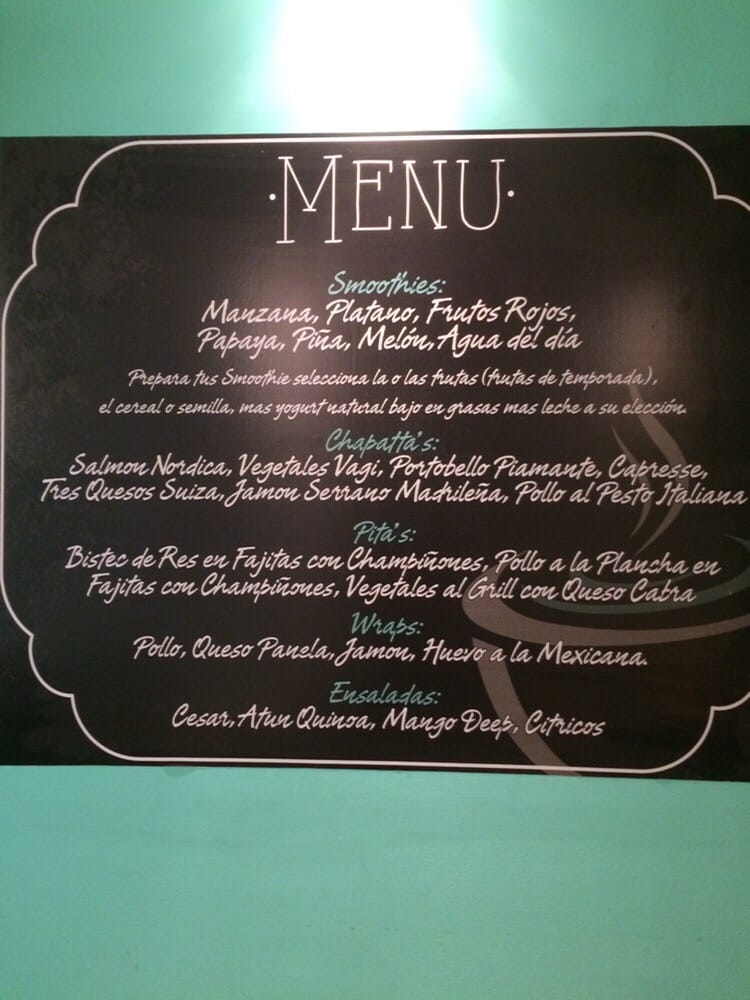 · MENU ·
Smoothies:
Manzana, Platano, Frutos Rojos,
Papaya, Piña, Melón, Agua del día
Prepara tus Smoothie selecciona la o las frutas (frutas de temporada),
el cereal o semilla, mas yogurt natural bajo en grasas mas leche a su elección.
Chapatta's:
Salmon Nordica, Vegetales Vagi, Portobello Piamante, Capresse,
Tres Quesos Suiza, Jamon Serrano Madrileña, Pollo al Pesto Italiana
Pita's:
Bistec de Res en Fajitas con Champiñones, Pollo a la Plancha en
Fajitas con Champiñones, Vegetales al Grill con Queso Cabra
Wraps:
Pollo, Queso Panela, Jamon, Huevo a la Mexicana.
Ensaladas:
Cesar, Atun Quinoa, Mango Deep, Citricos